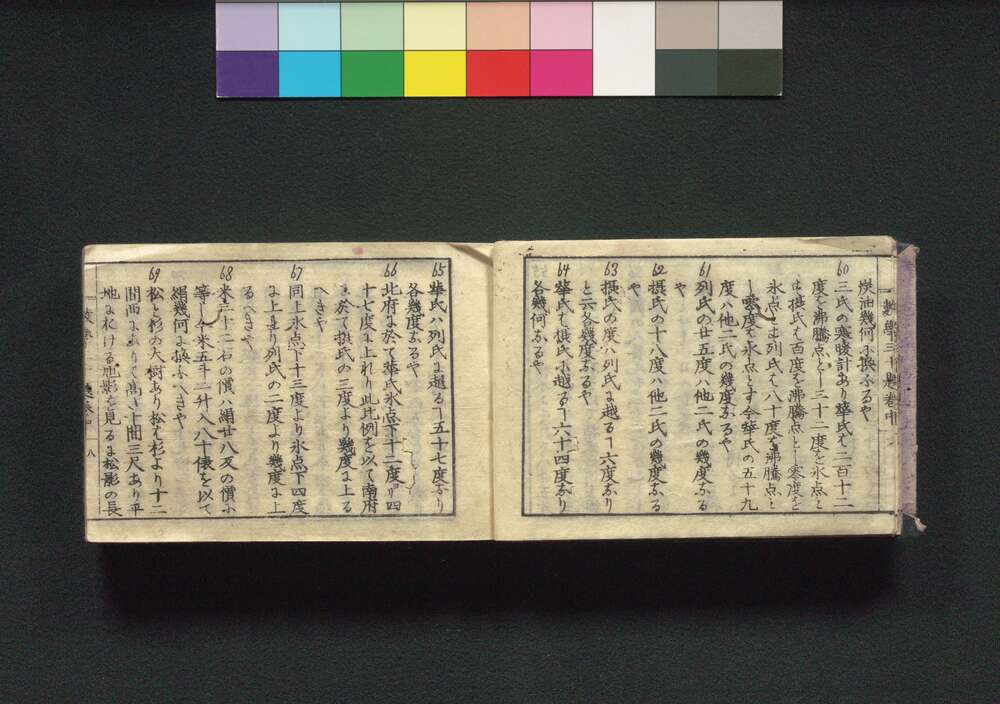 炭油幾何ニ換ふるや
60
三氏の寒暖計あり華氏ハ二百十二
度を沸騰点とし三十二度を氷点と
し摂氏ハ百度を沸騰点とし零度を
氷点とし列氏ハ八十度を沸騰点と
し零度を氷点とす今華氏の五十九
度ハ他二氏の幾度なるや
61
列氏の廿五度ハ他二氏の幾度なる
や
62
摂氏の十八度ハ他二氏の幾度なる
や
63
摂氏の度ハ列氏に越るヿ六度なり
と云各幾度なるや
64
華氏ハ摂氏に越るヿ六十四度なり
各幾何なるや
65
華氏ハ列氏に越るヿ五十七度なり
各幾度なるや
66
北府に於て華氏氷点下十二度より四
十七度に上れり此比例を以て南府
に於て摂氏の三度より幾度に上る
へきや
67
同上氷点下十三度より氷点下四度
に上より列氏の二度より幾度に上
るへきや
68
米三十二石の價ハ絹廿八反の價に
等し今米五斗二升入八十俵を以て
絹幾何に換ふへきや
69
松と杉の大樹あり松ハ杉より十二
間西にありて高さ十間三尺あり平
地に於ける地影を見るに松影の長